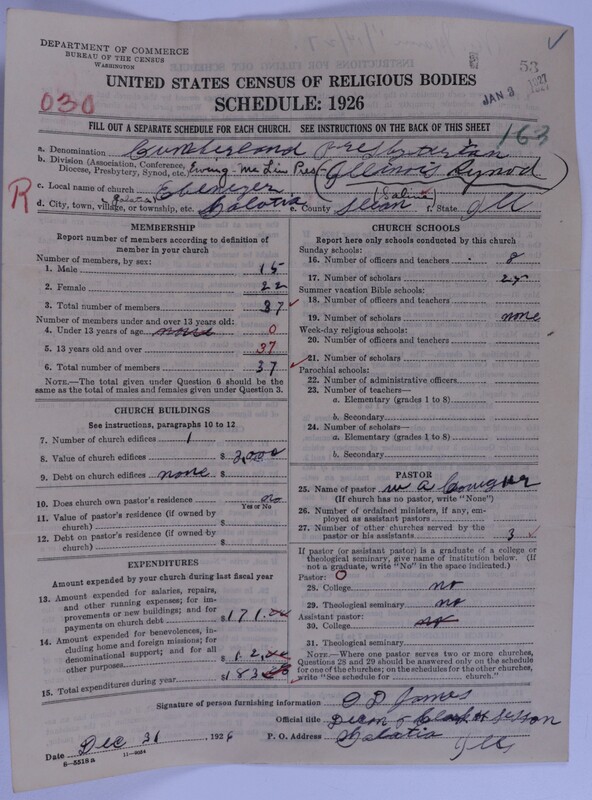 DEPARTMENT OF COMMERCE
BUREAU OF THE CENSUS
WASHINGTON
53
JAN 3 1927
UNITED STATES CENSUS OF RELIGIOUS BODIES
SCHEDULE: 1926
030
FILL OUT A SEPARATE SCHEDULE FOR EACH CHURCH. SEE INSTRUCTIONS ON THE BACK OF THIS SHEET
163
a. Denomination Cumberland Presbyterian
b. Division (Association, Conference, Diocese, Presbytery, Synod, etc. Ewing Mc Lin Pres (Illinois Synod)
R
c. Local name of church Ebenezer
d. City, town, village, or township, etc. Galatia e. County (Saline) f. State Ill
MEMBERSHIP
Report number of members according to definition of member in your church
Number of members, by sex:
1. Male 15
2. Female 22
3. Total number of members 37
Number of members under and over 13 years old:
4. Under 13 years of age none 0
5. 13 years old and over 37
6. Total number of members 37
NOTE.—The total given under Question 6 should be the same as the total of males and females given under Question 3.
CHURCH BUILDINGS
See instructions, paragraphs 10 to 12
7. Number of church edifices 1
8. Value of church edifices $ 3,000
9. Debt on church edifices none $
10. Does church own pastor's residence no
Yes or No
11. Value of pastor's residence (if owned by church) $
12. Debt on pastor's residence (if owned by church) $
EXPENDITURES
Amount expended by your church during last fiscal year
13. Amount expended for salaries, repairs, and other running expenses; for improvements or new buildings; and for payments on church debt $ 171.00
14. Amount expended for benevolences, including home and foreign missions; for denominational support; and for all other purposes $ 12.00
15. Total expenditures during year $ 183.00
CHURCH SCHOOLS
Report here only schools conducted by this church
Sunday schools:
16. Number of officers and teachers 8
17. Number of scholars
Summer vacation Bible schools:
18. Number of officers and teachers
19. Number of scholars none
Week-day religious schools:
20. Number of officers and teachers
21. Number of scholars
Parochial schools:
22. Number of administrative officers
23. Number of teachers—
a. Elementary (grades 1 to 8)
b. Secondary
24. Number of scholars—
a. Elementary (grades 1 to 8)
b. Secondary
PASTOR
25. Name of pastor W A
(If church has no pastor, write "None")
26. Number of ordained ministers, if any, employed as assistant pastors
27. Number of other churches served by the pastor or his assistants 3
If pastor (or assistant pastor) is a graduate of a college or theological seminary, give name of institution below. (If not a graduate, write "No" in the space indicated.)
Pastor: 0
28. College no
29. Theological seminary no
Assistant pastor:
30. College no
31. Theological seminary
NOTE.—Where one pastor serves two or more churches, Questions 28 and 29 should be answered only on the schedule for one of the churches; on the schedules for the other churches, write "See schedule for ________ church."
Signature of person furnishing information O D James
Official title Decon & Clerk of Session
Date Dec 31, 1926 P. O. Address Galatia Ill
8-5518a 11-9034